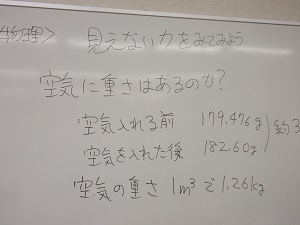 物理> 見えない力をみてみよう
空気に重さはあるのか?
空気入れる前 179.476g
空気を入れた後 182.60g 約3
空気の重さ 1m³で1.26kg